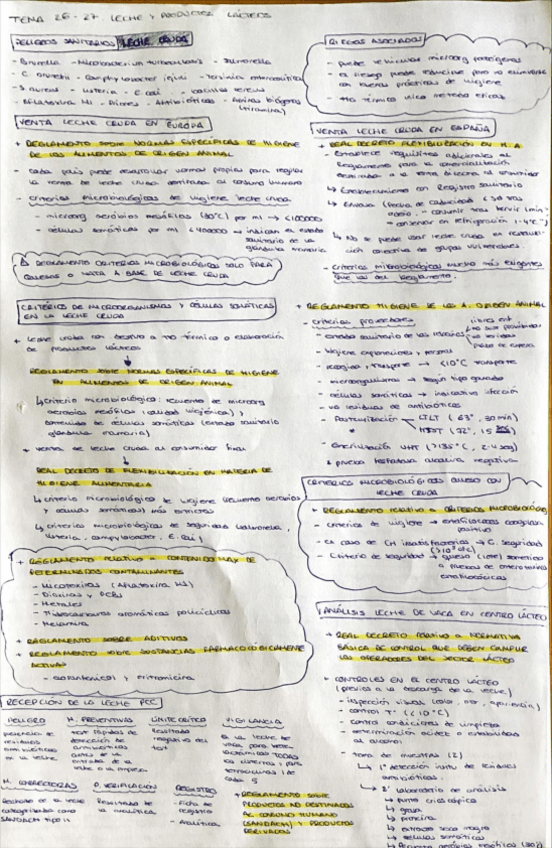 TEMA 26-27. LECHE Y PRODUCTOS LÁCTEOS
PELIGROS SANITARIOS LECHE CRUDA
- Brucella - Micobacterium tuberculosis - Salmonella
- C. burnetii - Campylobacter jejuni - Yersinia enterocolitica
- S. aureus - Listeria - E. coli - Bacillus cereus
- Aflatoxina M1 - Priones - Antibióticos - Aminas biógenas
(tiramina)
RIESGOS ASOCIADOS
- puede vehicular microorg patógenos
- el riesgo puede reducirse pero no eliminarse
con buenas prácticas de higiene
- tto térmico único método eficaz
VENTA LECHE CRUDA EN EUROPA
+ REGLAMENTO sobre NORMAS ESPECÍFICAS DE HIGIENE
DE LOS ALIMENTOS DE ORIGEN ANIMAL
- cada país puede desarrollar normas propias para regular
la venta de leche cruda destinada al consumo humano
- criterios microbiológicos de higiene leche cruda
- microorg aerobios mesófilos (30°C) por ml → ≤100000
- células somáticas por ml ≤400000 → indican el estado
sanitario de la
glándula mamaria
⚠ REGLAMENTO CRITERIOS MICROBIOLÓGICOS SOLO PARA
QUESOS O NATA A BASE DE LECHE CRUDA
VENTA LECHE CRUDA EN ESPAÑA
+ REAL DECRETO FLEXIBILIZACIÓN EN H.A
- establece requisitos adicionales al
Reglamento para la comercialización
destinada a la venta directa al consumidor
↳ Establecimiento con Registro sanitario
↳ Envase (Fecha de caducidad
consumir tras hervir 1 min
+ conservar en refrigeración 1-4°C)
↳ No se puede usar leche cruda en
colectiva de grupos vulnerables.
- Criterios microbiológicos mucho más exigentes
que los del Reglamento.
CRITERIOS DE MICROORGANISMOS Y CÉLULAS SOMÁTICAS
EN LA LECHE CRUDA
+ Leche cruda con destino a tto térmico o elaboración
de productos lácteos
↓
REGLAMENTO sobre NORMAS ESPECÍFICAS DE HIGIENE
EN ALIMENTOS DE ORIGEN ANIMAL
↳ criterio microbiológico: recuento de microorg
aerobios mesófilos (calidad higiénica) y
contenido de células somáticas (estado sanitario
glándula mamaria)
+ venta de leche cruda al consumidor final
↓
REAL DECRETO DE FLEXIBILIZACIÓN EN MATERIA DE
HIGIENE ALIMENTARIA
↳ criterio microbiológico de higiene (recuento aerobios
y células somáticas) más estrictos
↳ criterios microbiológicos de seguridad (salmonella,
listeria, campylobacter, E. coli)
+ REGLAMENTO HIGIENE DE LOS A. ORIGEN ANIMAL
- criterios productores
- estado sanitario de los rebaños
- higiene explotaciones y personal
- recogida y transporte → <10°C transporte
- microorganismos → según tipo ganado
- células somáticas → indicativo infección
- no residuos de antibióticos
- Pasteurización → LTLT (63°, 30 min)
→ HTST (72°, 15 seg)
- Esterilización UHT (>135°C, 2-4 seg)
↳ prueba fosfatasa alcalina negativa
CRITERIOS MICROBIOLÓGICOS QUESO CON
LECHE CRUDA
+ REGLAMENTO relativo a CRITERIOS MICROBIOLÓGICOS
- criterios de higiene → estafilococos coagulasa
positivo
- en caso de CH insatisfactorias → C. seguridad
(>10⁵ ufc)
- criterio de seguridad → queso (lote) sometido
a pruebas de enterotoxina
estafilocócicas
+ REGLAMENTO relativo a CONTENIDO MAX DE
DETERMINADOS CONTAMINANTES
- Micotoxinas (Aflatoxina M1)
- Dioxinas y PCBs
- Metales
- Hidrocarburos aromáticos policíclicos
- Melamina
+ REGLAMENTO SOBRE ADITIVOS
+ REGLAMENTO sobre SUSTANCIAS FARMACOLÓGICAMENTE
ACTIVAS
- cloranfenicol y eritromicina
ANÁLISIS LECHE DE VACA EN CENTRO LÁCTEO
+ REAL DECRETO relativo a NORMATIVA
BÁSICA DE CONTROL QUE DEBEN CUMPLIR
LOS OPERADORES DEL SECTOR LÁCTEO
+ CONTROLES EN EL CENTRO LÁCTEO
(previos a la descarga de la leche)
- inspección visual (color, olor, apariencia)
- control Tª (<10°C)
- control condiciones de limpieza
- determinación acidez o estabilidad
al alcohol
- toma de muestras (2)
↳ 1ª detección insitu de residuos
antibióticos.
↳ 2ª laboratorio de análisis
↳ punto crioscópico
↳ grasa
↳ proteína
↳ extracto seco magro
↳ células somáticas
↳ Recuento aerobios mesófilos (30°)
RECEPCIÓN DE LA LECHE PCC
PELIGRO M. PREVENTIVAS LÍMITE CRÍTICO VIGILANCIA
presencia de residuos antibióticos en la leche
test rápidos de detección de antibióticos antes de la entrada de la leche a la empresa
Resultado negativo del test
M. CORRECTORAS P. VERIFICACIÓN REGISTRO
Rechazo de la leche
SANDACH tipo II
Resultado de la analítica
- Ficha de registro
- Analítica
+ REGLAMENTO SOBRE
PRODUCTOS NO DESTINADOS
AL CONSUMO HUMANO
(SANDACH) Y PRODUCTOS
DERIVADOS